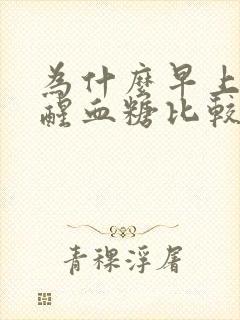 為什麼早上
醒血糖比較
青稞浮屠